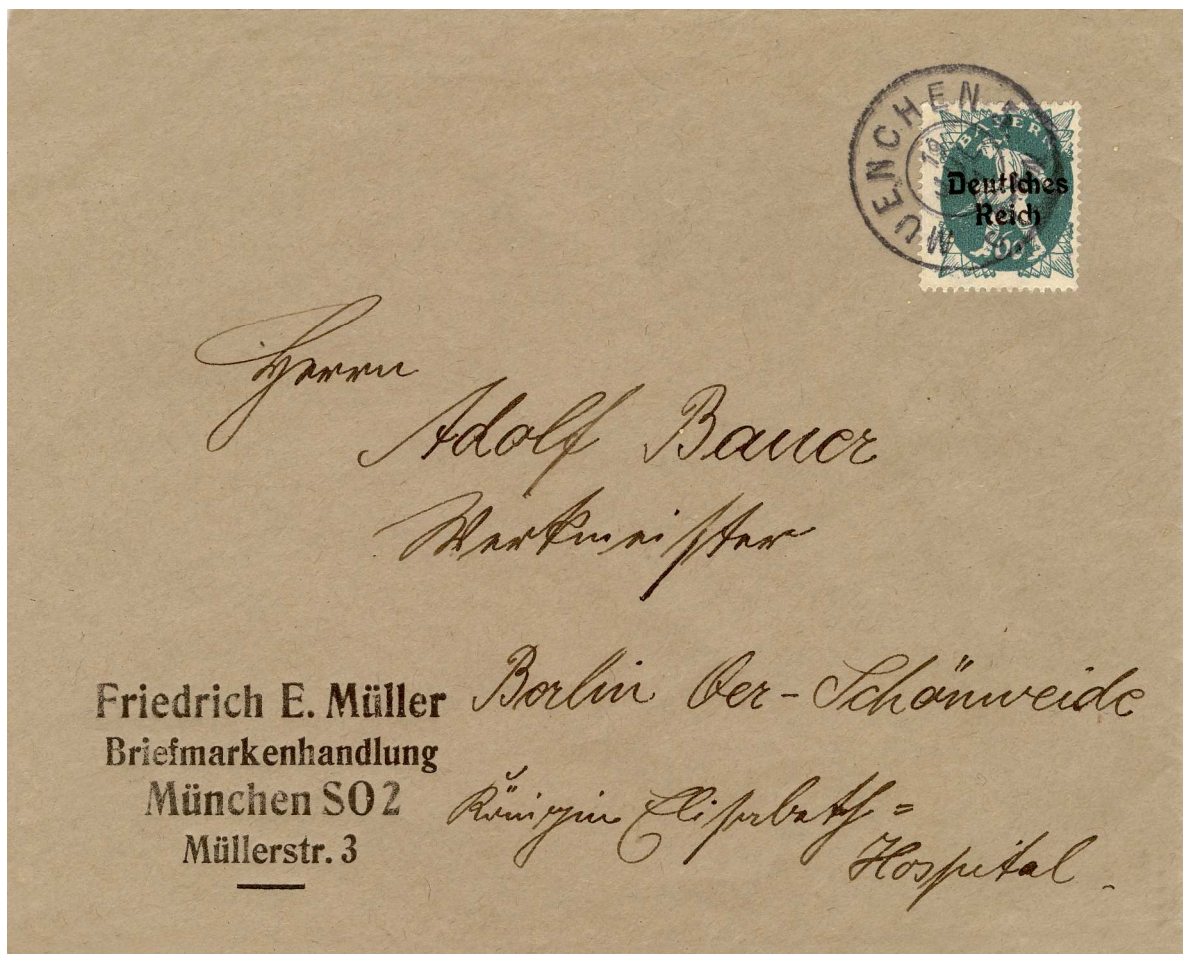 MUENCHEN
BAYERN
Deutsches
Reich
60
Herrn
Adolf Bauer
Werkmeister
Berlin Oer-Schönweide
Königin Elisabeth=
Hospital.
Friedrich E. Müller
Briefmarkenhandlung
München SO 2
Müllerstr. 3